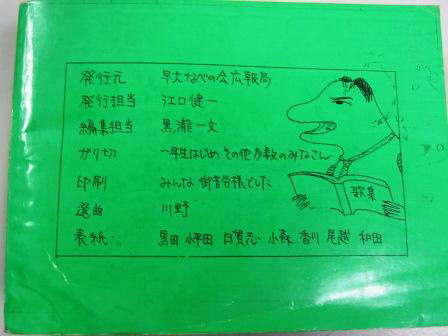 発行元 早大なべの会広報局
発行担当 江口健一
編集担当 黒瀧一文
ガリ切 一年生はじめその他多数のみなさん
印刷 みんな御苦労様でした
選曲 川野
表紙 黒田 日賀志 小森 香川 尾越 和田
歌集